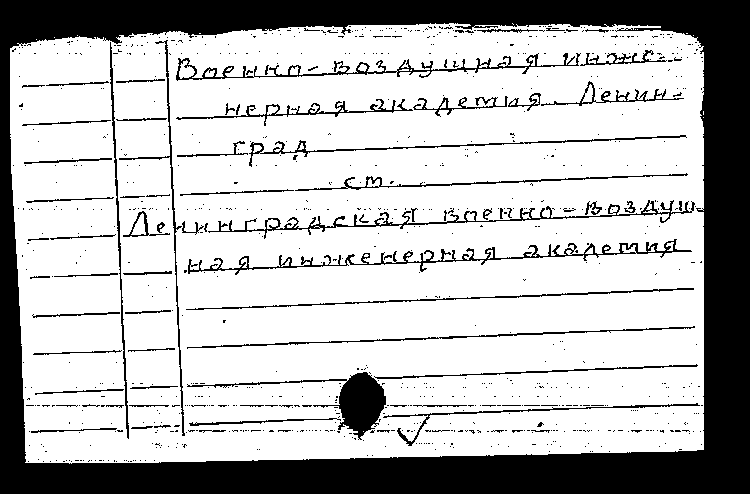 Военно-воздушная инже-
нерная академия. Ленин-
град
ст.
Ленинградская военно-воздуш-
ная инженерная академия